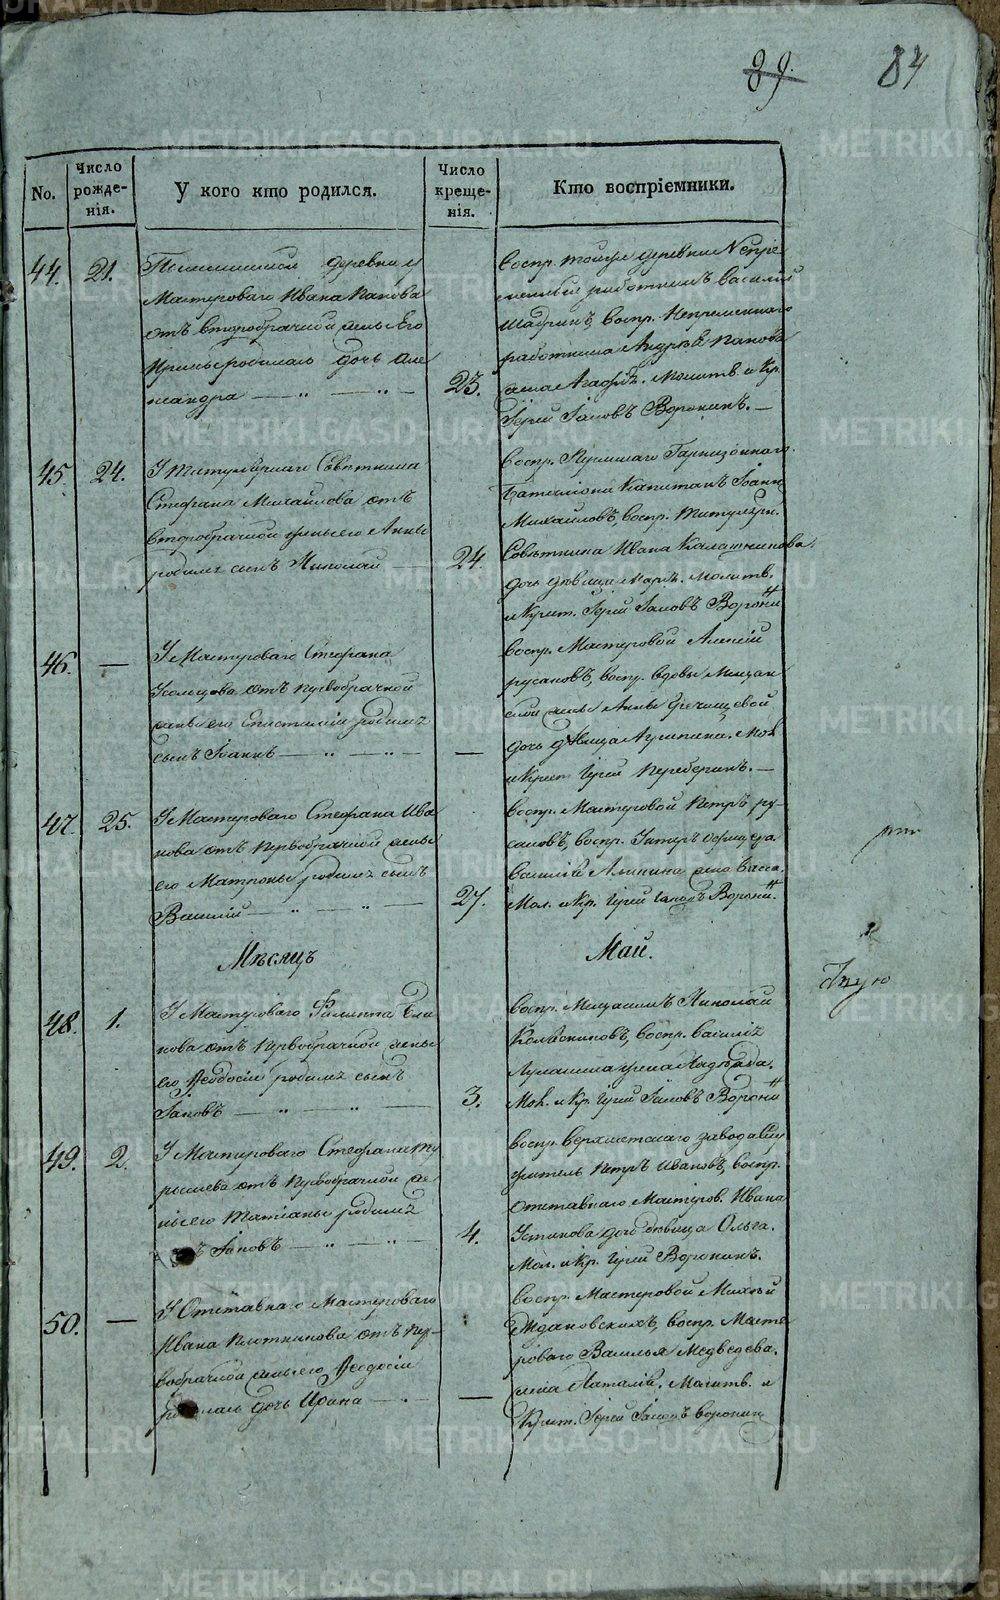 89. 84
No. Число рожде- нія. У кого кто родился. Число креще- нія. Кто воспріемники.
44. 21. деревни
Мастероваго Ивана Попова
отъ второбрачной жены Его
Ирины родилась дочь Але
ксандра — „ — „ —
23.
Воспр. тойже деревни Непре
менный работникъ Василій
Шадринъ, воспр. Непременнаго
работника Андрея Попова
жена Агафья. Молитв. и Кр.
Іерей Іаковъ Воронинъ. —
45. 24. У Титулярнаго Советника
Стефана Михайлова отъ
второбрачной жены его Анны
родился сынъ Николай —
24.
Воспр. Гарнизоннаго
Баталіона Капитанъ Іоаннъ
Михайловъ, воспр. Титулярн.
Советника Ивана Калашникова
дочь девица Марья. Молитв.
и Крест. Іерей Іаковъ Воронин
46. — У Мастероваго Стефана
Усольцова отъ первобрачной
жены его Епистиміи родился
сынъ Іоаннъ — „ — „ — —
Воспр. Мастеровой Алексей
Русаковъ, воспр. вдовы Мещан
ской жены Анны
дочь девица Агрипина. Мол.
и Крест. Іерей —
47. 25. У Мастероваго Стефана Ива
нова отъ первобрачной жены
его Матроны родился сынъ
Василій — „ — „ —
27.
Воспр. Мастеровой Петръ Ру-
саковъ, воспр. Унтеръ офицера
жена Васса.
Мол. и Кр. Іерей Іаковъ Воронин.
Мѣсяцъ Май.
48. 1. У Мастероваго Филиппа Бли
нова отъ первобрачной жены
его Феодосіи родился сынъ
Іаковъ — „ — „ —
3.
Воспр. Мещанинъ Николай
Колесниковъ, воспр. Василія
жена Надежда.
Мол. и Кр. Іерей Іаковъ Воронин
49. 2. У Мастероваго Стефана
отъ первобрачной же
ны его Татіаны родился
Іаковъ — „ — „ —
4.
Воспр. Верхисетскаго завода слу
житель Петръ Ивановъ, воспр.
отставнаго Мастеров. Ивана
Устинова дочь девица Ольга.
Мол. и Кр. Іерей Воронинъ.
50. — У Отставнаго Мастероваго
Ивана Плотникова отъ пер-
вобрачной жены его Феодосіи
родилась дочь Ирина — „ —
—
Воспр. Мастеровой
Ждановскихъ, воспр. Масте
роваго Василья Медведева
жена Наталія. Молитв. и
Крест. Іерей Іаковъ Воронин
METRIKI.GASO-URAL.RU